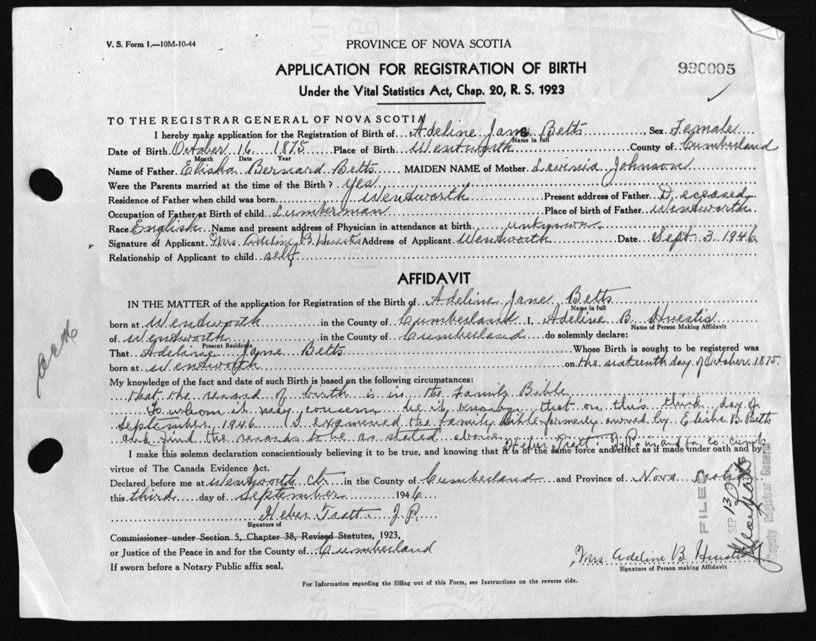 V. S. Form 1.—10M-10-44
PROVINCE OF NOVA SCOTIA
APPLICATION FOR REGISTRATION OF BIRTH
990005
Under the Vital Statistics Act, Chap. 20, R. S. 1923
TO THE REGISTRAR GENERAL OF NOVA SCOTIA
I hereby make application for the Registration of Birth of Adeline Jane Betts Sex Female
Name in full
Date of Birth October 16 1875 Place of Birth Wentworth County of Cumberland
Month Date Year
Name of Father Elisha Bernard Betts MAIDEN NAME of Mother Levinia Johnson
Were the Parents married at the time of the Birth? yes
Residence of Father when child was born Wentworth Present address of Father Deceased
Occupation of Father at Birth of child Lumberman Place of birth of Father Wentworth
Race English Name and present address of Physician in attendance at birth unknown
Signature of Applicant Mrs Adeline B. Huestis Address of Applicant Wentworth Date Sept. 3. 1946
Relationship of Applicant to child self
AFFIDAVIT
IN THE MATTER of the application for Registration of the Birth of Adeline Jane Betts
Name in full
born at Wentworth in the County of Cumberland I, Adeline B. Huestis
Name of Person Making Affidavit
of Wentworth in the County of Cumberland do solemnly declare:
Present Residence
That Adeline Jane Betts Whose Birth is sought to be registered was
born at Wentworth on the sixteenth day of October 1875
My knowledge of the fact and date of such Birth is based on the following circumstances:
That the record of birth is in the Family Bible
To whom it may concern be it known that on this third day of
September 1946 I examined the family Bible formerly owned by Elisha B. Betts
and find the records to be as stated above
J.P. in and for co. Cumb
I make this solemn declaration conscientiously believing it to be true, and knowing that it is of the same force and effect as if made under oath and by
virtue of The Canada Evidence Act.
Declared before me at Wentworth Ctr in the County of Cumberland and Province of Nova Scotia
this third day of September 1946
Heber Tratt J.P.
Signature of
Commissioner under Section 5, Chapter 38, Revised Statutes, 1923,
or Justice of the Peace in and for the County of Cumberland
If sworn before a Notary Public affix seal.
Mrs Adeline B. Huestis
Signature of Person making Affidavit
FILED
SEP 13
Deputy Registrar General
For Information regarding the filling out of this Form, see Instructions on the reverse side.